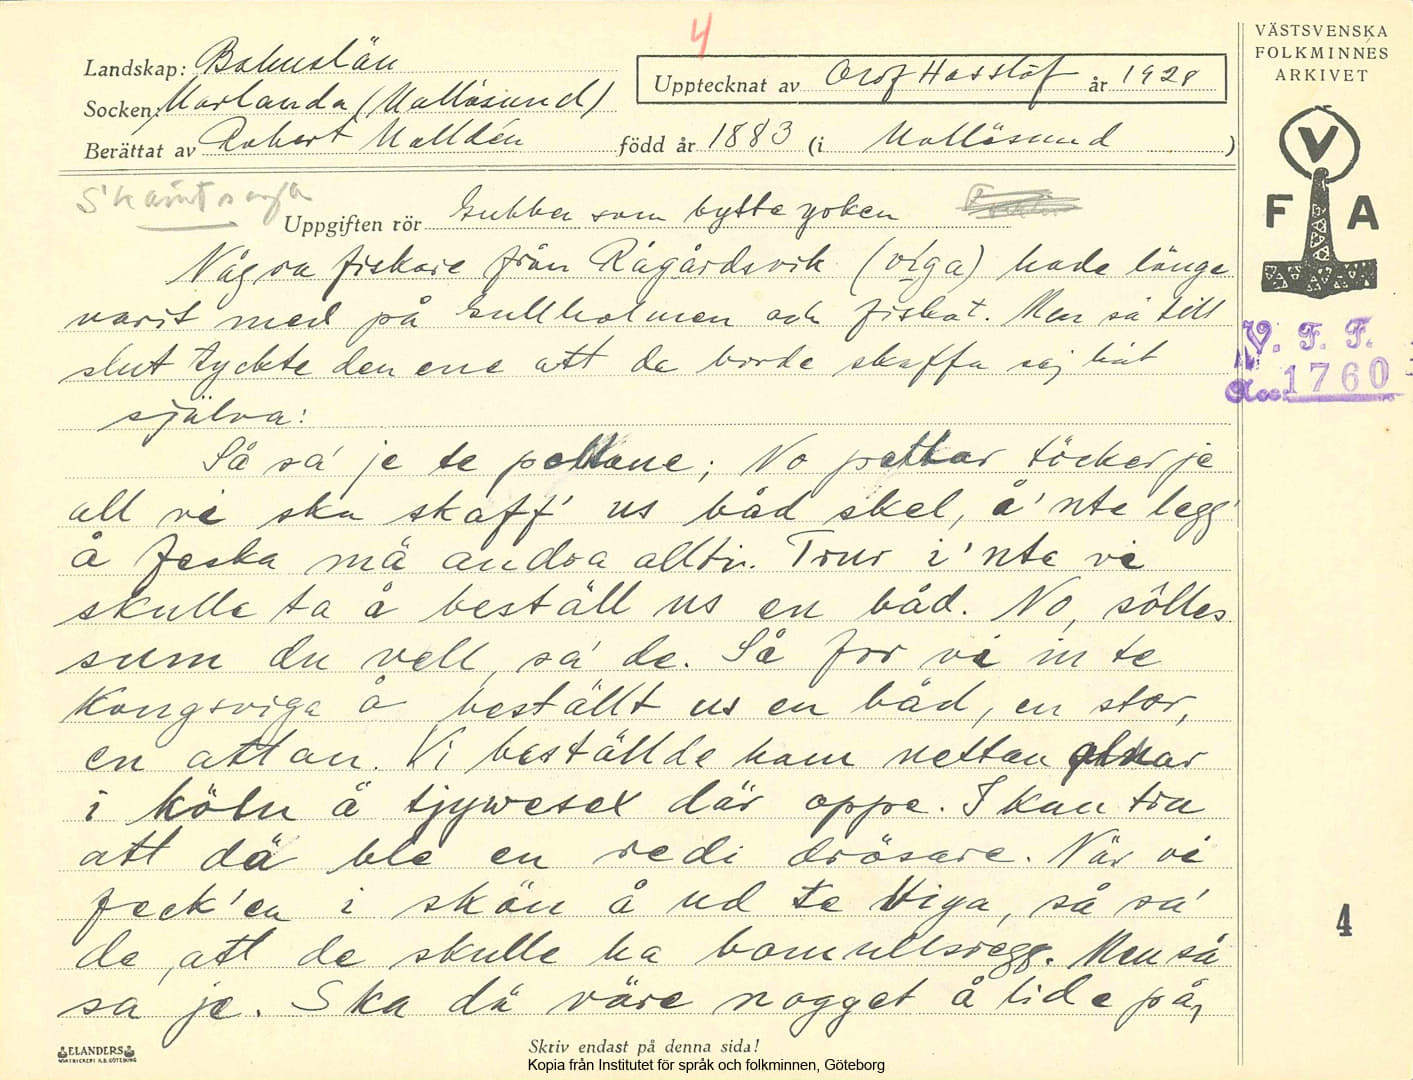 4
Landskap: Bohuslän
Upptecknat av Olof Hasslöf år 1928
Socken: Morlanda (Mollösund)
Berättat av Robert Molldén född år 1883 (i Mollösund)
Skämtsaga
Uppgiften rör Gubben som bytte yoken
Några fiskare från Rågårdsvik (viga) hade länge
varit med på Gullholmen och fiskat. Men så till
slut tyckte den ene att de borde skaffa sej båt
själva:
Så sa' je te pettane; No pettar töcker je
all vi ska skaff' us båd skel, å 'nte legg'
å feska mä andra allti. Trur i 'nte vi
skulle ta å beställ us en båd. No, sölles
sum du vell, sa' de. Så for vi in te
Kongsviga å beställt us en båd, en stor,
en attan. Vi beställde ham nettan alnar
i köln å tjywesex där oppe. I kan tru
att dä ble en redi dräsare. När vi
feck 'en i skön å ud te Viga, så sa'
de, att de skulle ha bomullsregg. Men så
sa je. Ska dä väre nogget å lide på,
VÄSTSVENSKA
FOLKMINNES
ARKIVET
V
F A
V. F. F.
Acc: 1760
4
ELANDERS
Skriv endast på denna sida!
Kopia från Institutet för språk och folkminnen, Göteborg